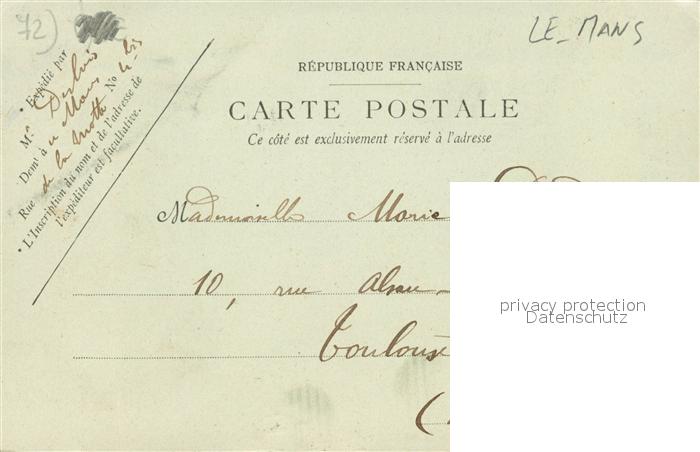 72)
LE-MANS
RÉPUBLIQUE FRANÇAISE
CARTE POSTALE
Ce côté est exclusivement réservé à l'adresse
• Expédié par
M.r
Demt à au Mans
Rue de la Motte No
• L'Inscription du nom et de l'adresse de
l'expéditeur est facultative.
Mademoiselle Marie
10, rue Alsace-
Toulouse
(
privacy protection
Datenschutz